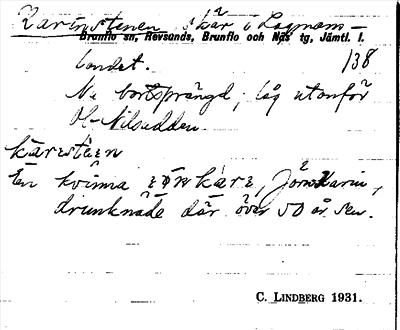 Karinstenen, skär i Lagmans-
Brunflo sn, Revsunds, Brunflo och Näs tg, Jämtl. l.
landet. 138
Nu bortsprängd; låg utanför
Nilsudden.
En kvinna, Karin,
drunknade där över 50 år sen.
C. LINDBERG 1931.